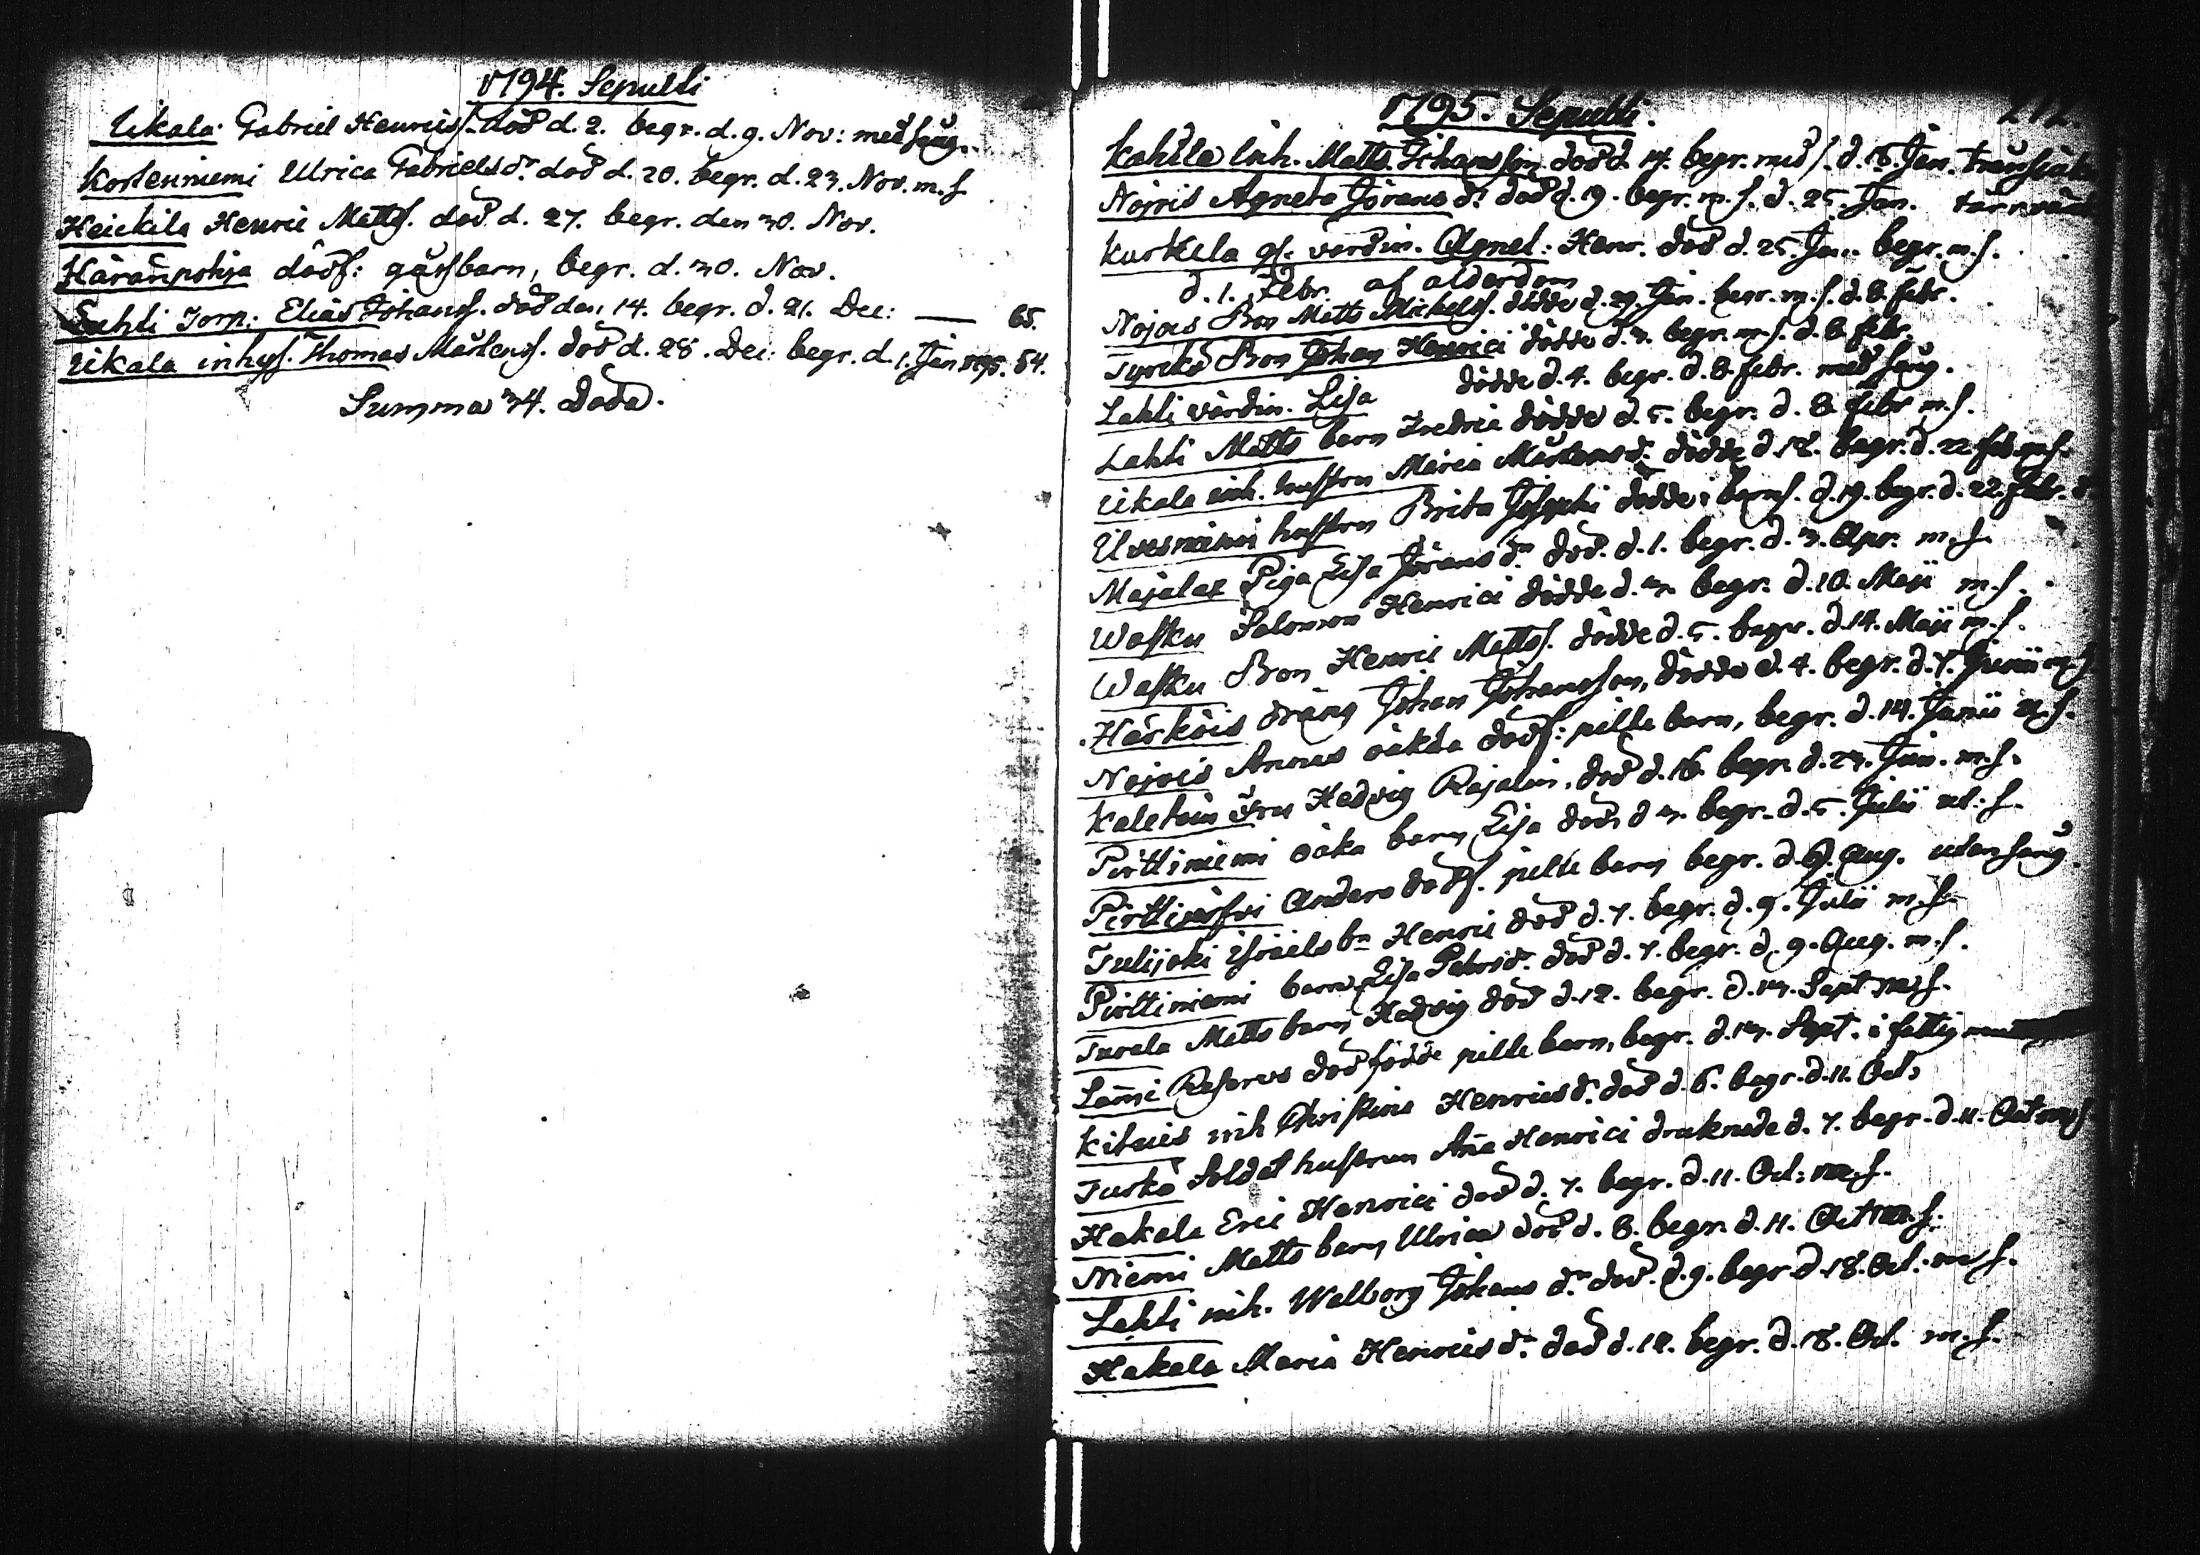 1794. Sepulti
Uikala Gabriel Henricss. död d. 2. begr. d. 9. Nov: med sång.
Kortenniemi Ulrica Gabrielsdr död d. 20. begr. d. 23. Nov. m. s.
Heickilä Henric Mattss. död d. 27. begr. den 30. Nov.
Häränpohja dödf: gåssbarn, begr. d. 30. Nov.
Torp: Elias Johanss. död den 14. begr. d. 21. Dec: — 65.
Uikala inhys. Thomas Mårtenss. död d. 28. Dec: begr. d. 1. Jan 1795. 54.
Summa 34. döda.
1795. Sepulti.
Kahila Inh. Matts Johansson död d. 14. begr. med s. d. 18. Jan.
Nojris Agneta Jörans dr död d. 19. begr. m. s. d. 25. Jan.
Kurkela gl. värdin. Agnet: Henr. död d. 25. Jan. begr. m. s.
d. 1. Febr. af ålderdom
Nojois Son Matts Michelss. dödde d. 29. Jan. begr. m. s. d. 8. febr.
Son Johan Henrici dödde d. 3. begr. m. s. d. 8. febr.
Lahti värdin. Lisa dödde d. 4. begr. d. 8. febr. med sång.
Lahti Matts barn Fredric dödde d. 5. begr. d. 8. febr m. s.
Uikala inh. hustru Maria Mårtens dr dödde d. 18. begr. d. 22. feb. m s.
hustru Brita Josephi dödde i barns. d. 19. begr. d. 22. febr.
Majalax Piga Lisa Jörans dr död. d. 1. begr. d. 3. Apr. m. s.
Wasku Salomon Henrici dödde d. 3. begr. d. 10. Maji m. s.
Wasku Son Henric Mattss. dödde d. 5. begr. d. 14. Maji m. s.
Härköis dräng Johan Johansson, dödde d. 4. begr. d. 7. Junii m. s.
Nojois Annas oäkta dödf: pilte barn, begr. d. 14. Junii u. s.
Kaletoin Fru Hedvig Rajalin. död d. 16. begr. d. 23. Jun. m. s.
Pirttiniemi oäka barn Lisa död d 3. begr. d. 5. Julii ut: s.
Anders dödf. pilte barn begr. d. 9. Aug. utan sång.
Tulijoki Israels bn Henric död d. 7. begr. d. 9. Julii m. s.
Pirttiniemi barn Lisa Petri dr död d. 7. begr. d. 9. Aug. m. s.
Turela Matts barn Hedvig död d. 12. begr. d. 13. Sept m. s.
Lam̄i Reserves dödfödde pilte barn, begr. d. 13. Sept. i fattig
inh Christina Henrics dr död d. 6. begr. d. 11. Oct:
Turka Soldat hustrun An̄a Henrici druknade d. 7. begr. d. 11. Oct m s
Hakala Eric Henrici död d. 7. begr. d. 11. Oct: m. s.
Niemi Matts barn Ulrica död d. 8. begr. d. 11. Oct m. s.
Lahti inh. Walborg Johans dr död. d. 9. begr. d. 18. Oct. m s.
Hakala Maria Henrics dr död d. 12. begr. d. 18. Oct. m. s.